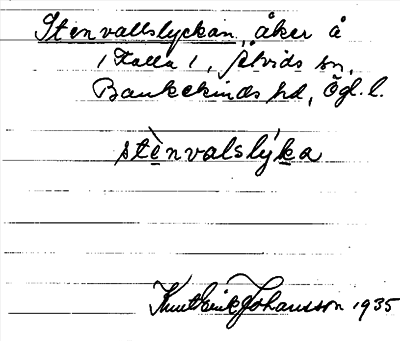 Stenvallslyckan, åker å
/Kalla/, Åtvids sn,
Bankekinds hd, Ögl. l.
stènvalslýka
Knut Erik Johansson 1935